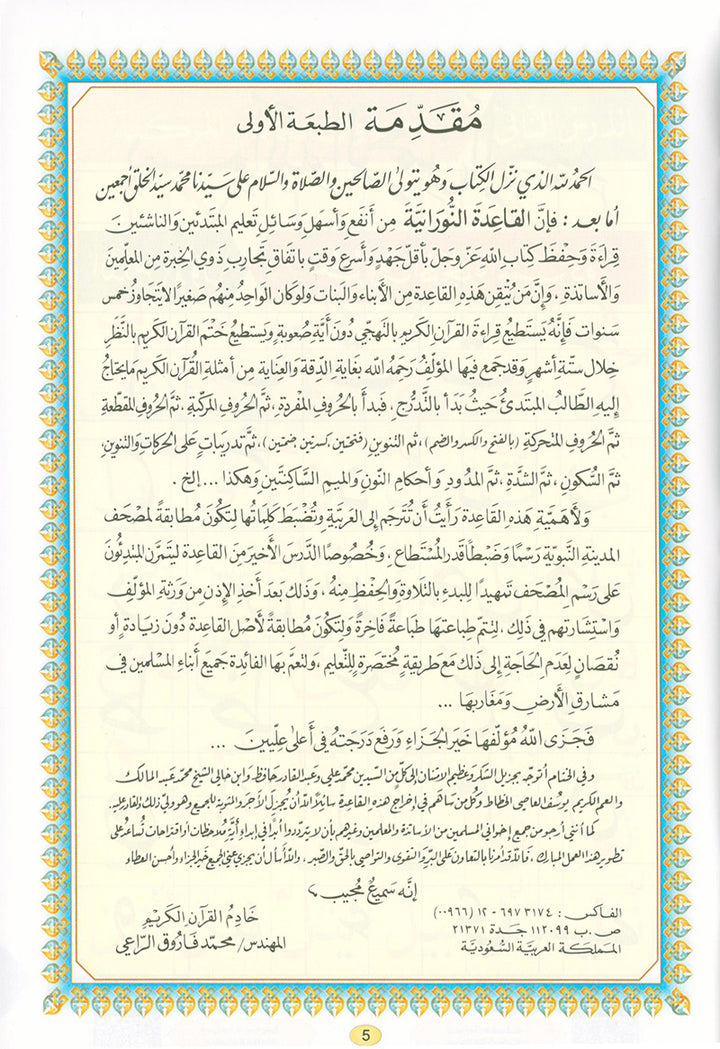 مُقَدِّمَة الطبعَة الأولى
الحمدُ لله الذي نزّل الكِتاب وَهُو يتولى الصّالحين والصّلاة والسّلام على سَيّدنا محمّد سيّد الخلق أجمعين
أما بعد : فإنَّ القَاعِدَة النُّورَانِيَّة مِن أنفَع وَأسهل وَسَائِل تَعليم المبتَدئين وَالناشئين
قِراءَةً وَحِفظَ كِتاب الله عَزّ وَجلّ بأقلّ جَهدٍ وَأسرَع وَقتٍ باتفاق تجَارب ذَوي الخِبرة مِن المعلّمين
وَالأسَاتذة ، وَإنَّ مَن يُتقِن هَذِهِ القاعِدة مِن الأبناء وَالبنات وَلوكَان الوَاحِدُ مِنهُم صَغيرًا لايَتجَاوزُ خمس
سَنوات فَإنَّهُ يَستَطيعُ قِراءةَ القرآن الكَريم بالتّهَجّي دُونَ أيَّةِ صُعوبةٍ وَيستطيعُ خَتْمَ القرآن الكَريم بالنَّظَر
خِلال ستّة أشهرٍ وَقد جَمع فيهَا المؤلّفُ رَحِمَهُ الله بغَايةِ الدِّقة وَالعِنَاية مِن أمثلةِ القُرآن الكَريم مَايحتَاجُ
إليهِ الطَّالبُ المبتَدئُ حَيثُ بَدأ بالتَّدرُّج ، فَبدأ بالحُروف المفْرَدة ، ثمَّ الحُروف المركّبة ، ثمَّ الحُروف المقَطّعة
ثمَّ الحُروف المتَحركَة (بالفتح والكسر والضم) ، ثم التنوين (فتحتين كسرتين ضمتين) ، ثمَّ تدريباتٍ عَلى الحَركاتِ وَالتنوينِ
ثمَّ السُّكونِ ، ثمَّ الشدَّةِ ، ثمَّ المدُودِ وَأحكامِ النّونِ وَالميمِ السَّاكِنتَين وَهكَذا ... إلخ .
وَلأهَمّيَّةِ هَذِهِ القَاعدَة رَأيتُ أن تُترجَم إلى العَربيَّة وَتُضْبَط كَلماتُها لِتكُونَ مُطابِقةً لمصْحَف
المدينةِ النَّبويّة رَسْمًا وَضَبطًا قَدر المُسْتَطاع ، وَخُصُوصًا الدَّرسَ الأخيرَ مِنَ القَاعِدة ليتَمرَّن المبتَدِئُونَ
عَلى رَسْمِ المُصْحَف تَمهيدًا للبَدءِ بالتّلاوةِ وَالحِفظِ مِنهُ ، وَذلكَ بَعدَ أَخْذِ الإذنِ مِن وَرَثةِ المؤَلّفِ
وَاستِشَارتهم في ذَلكَ ، لِتَتمّ طِباعتها طبَاعةً فَاخِرةً وَلتِكُونَ مُطابقَةً لأصْل القَاعدة دُونَ زيَادةٍ أو
نُقصَانٍ لِعَدمِ الحَاجة إلى ذلكَ مَعَ طَريقةٍ مُختَصَرةٍ لِلتَّعليم ، وَلتعمَّ بها الفائدة جَميعَ أبنَاءِ المسْلمين في
مَشارقِ الأرْضِ وَمَغَاربهَا ...
فَجَزى اللهُ مُؤلِّفَهَا خَيرَ الجَزاء وَرَفعَ دَرَجَتهُ في أَعلى عِلّيينَ ...
وفي الختام أتوجّه بجزيل الشكر وعظيم الامتنان إلى كلٍّ من السيدين محمّد علي وعبد القادر حافظ وابن خالي الشيخ محمّد عبد المالك
والعم الكريم يوسُف العاصي الخطاط وكل من ساهَم في إخراج هذه القاعدة سائلًا اللهَ أن يُجزلَ الأجر والمثوبة للجميع وهو وليّ ذلك والقادر عليه.
كما أنني أرجو من جميع إخواني المسلمين من الأساتذة والمعلمين وغيرهم بأن لا يتردّدوا أبدًا في إبداء أيَّة ملاحظات أو اقتراحات تُساعدُ على
تطوير هذا العمل المبارك ، فالله قد أمرنا بالتعاون على البرّ والتقوى والتواصي بالحقّ والصّبر ، واللهَ أسأل أن يجزي عني الجميع خير الجزاء وأحسن العطاء
إنّه سَميعٌ مُجيب ،
الفـاكس : ٦٩٧٣١٧٤ - ١٢ (٠٠٩٦٦)
ص . ب ١١٢٠٩٩ جَـدة ٢١٣٧١
المملكَة العربيّة السُّعوديّة
خَادِمُ القرآن الكَريْم
المهندس/ محمّد فَارُوق الرَّاعِي
5